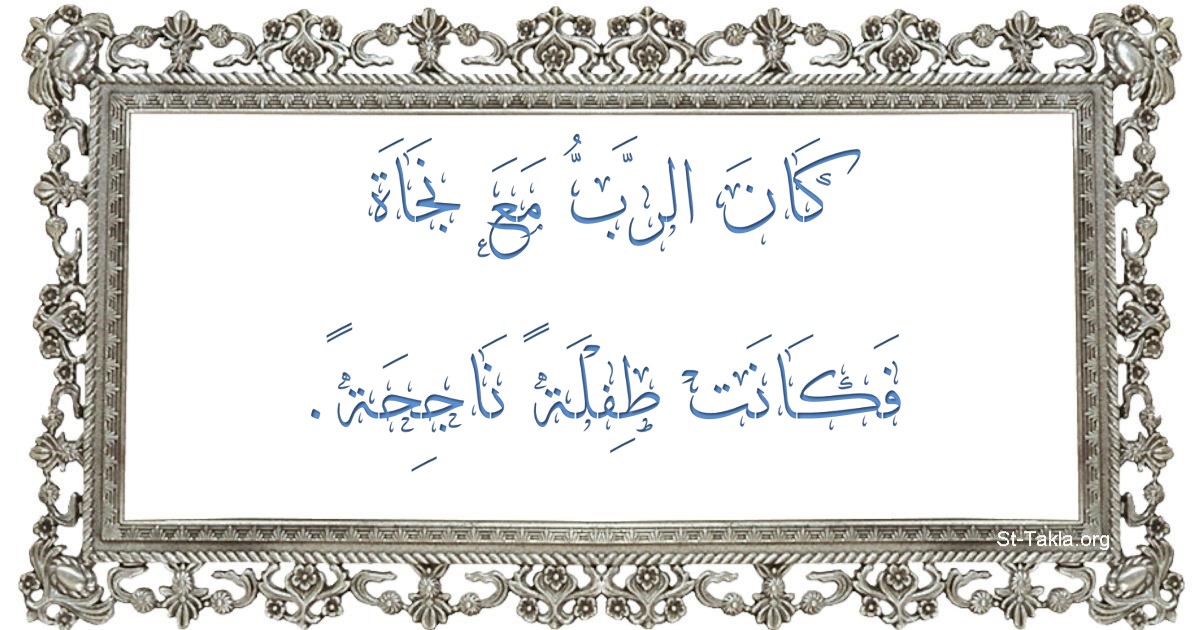 كَانَ الرَّبُّ مَعَ نَجَاَة
فَكَانَت طِفْلَةً نَاجِحَةً.
St-Takla.org